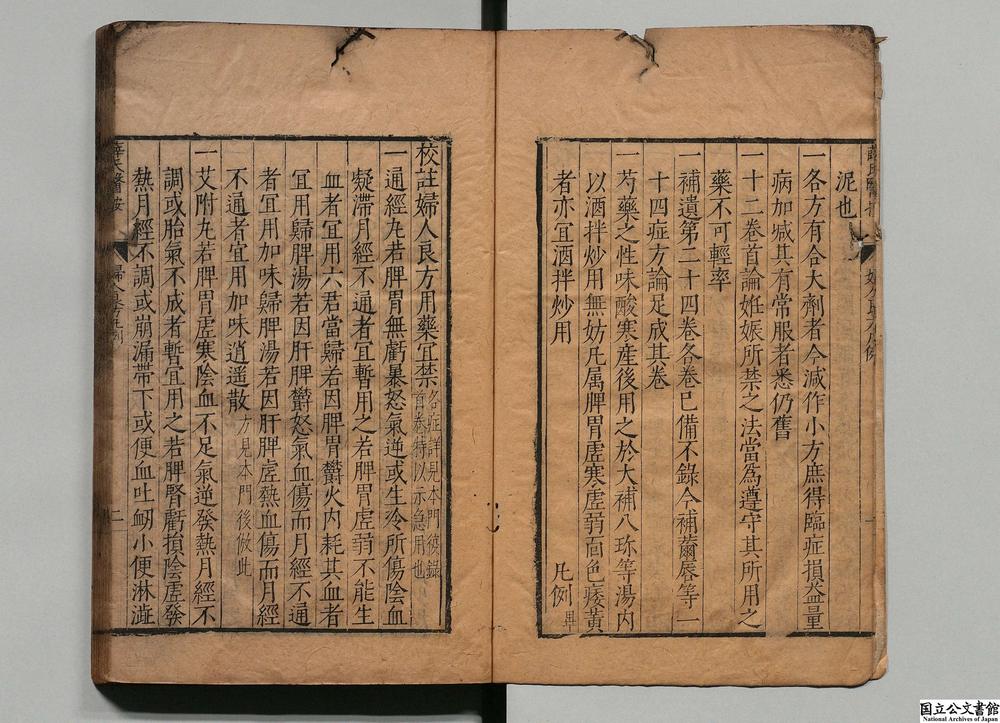 泥也
一各方有合大劑者今減作小方庶得臨症損益量
病加減其有常服者悉仍舊
一十二卷首論姙娠所禁之法當為遵守其所用之
藥不可輕率
一補遺第二十四卷各卷已備不錄今補繭唇等一
十四症方論足成其卷
一芍藥之性味酸寒產後用之於大補八珎等湯内
以酒拌炒用無妨凡属脾胃虛寒虛弱面色痿黃
者亦宜酒拌炒用
凡例畢
校註婦人良方用藥宜禁
各症詳見本門復錄
首卷特以示急用也
一通經丸若脾胃無虧暴怒氣逆或生冷所傷陰血
凝滯月經不通者宜暫用之若脾胃虛弱不能生
血者宜用六君當歸若因脾胃欝火内耗其血者
宜用歸脾湯若因肝脾欝怒氣血傷而月經不通
者宜用加味歸脾湯若因肝脾虛熱血傷而月經
不通者宜用加味逍遥散方見本門後倣此
一艾附丸若脾胃虛寒陰血不足氣逆發熱月經不
調或胎氣不成者暫宜用之若脾腎虧損陰虛發
熱月經不調或崩漏帶下或便血吐衂小便淋澁
薛氏醫按
二
国立公文書館
National Archives of Japan